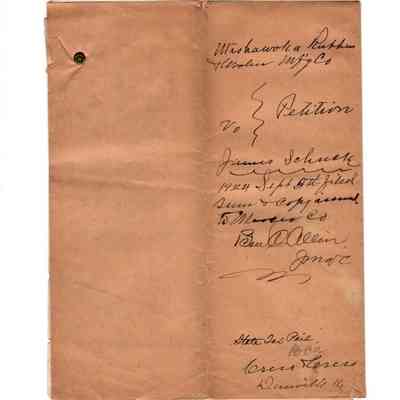 Mishawaka Rubber
& Woolen Mfg Co
vs } Petition
James Schuck
1924 Sept 5th filed
Sum & Copy issued
To Mercer Co
Ben C Allin
State Tax Paid